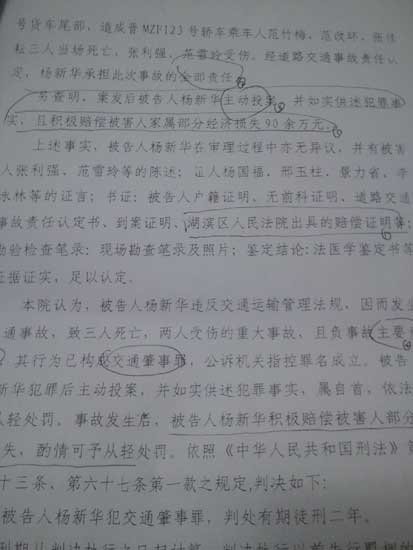 号货车尾部，造成晋MZF123号轿车乘车人范竹梅、范改环、张佳
耘三人当场死亡，张利强、范雪玲受伤。经道路交通事故责任认
定，杨新华承担此次事故的全部责任。
另查明，案发后被告人杨新华主动投案，并如实供述犯罪事
实，且积极赔偿被害人家属部分经济损失90余万元。
上述事实，被告人杨新华在审理过程中亦无异议，并有被害
人张利强、范雪玲等的陈述；证人杨国福、邢玉柱、景力省、李
水林等的证言；书证：被告人户籍证明、无前科证明、道路交通
事故责任认定书、到案证明、湖滨区人民法院出具的赔偿证明等；
勘验检查笔录：现场勘查笔录及照片；鉴定结论：法医学鉴定书等
证据证实，足以认定。
本院认为，被告人杨新华违反交通运输管理法规，因而发生
通事故，致三人死亡，两人受伤的重大事故，且负事故主要
，其行为已构成交通肇事罪，公诉机关指控罪名成立。被告
新华犯罪后主动投案，并如实供述犯罪事实，属自首，依法
从轻处罚。事故发生后，被告人杨新华积极赔偿被害人部分
失，酌情可予从轻处罚。依照《中华人民共和国刑法》第
十三条、第六十七条第一款之规定，判决如下：
被告人杨新华犯交通肇事罪，判处有期徒刑二年。
刑期从判决执行之日起计算，判决执行以前先行羁押的